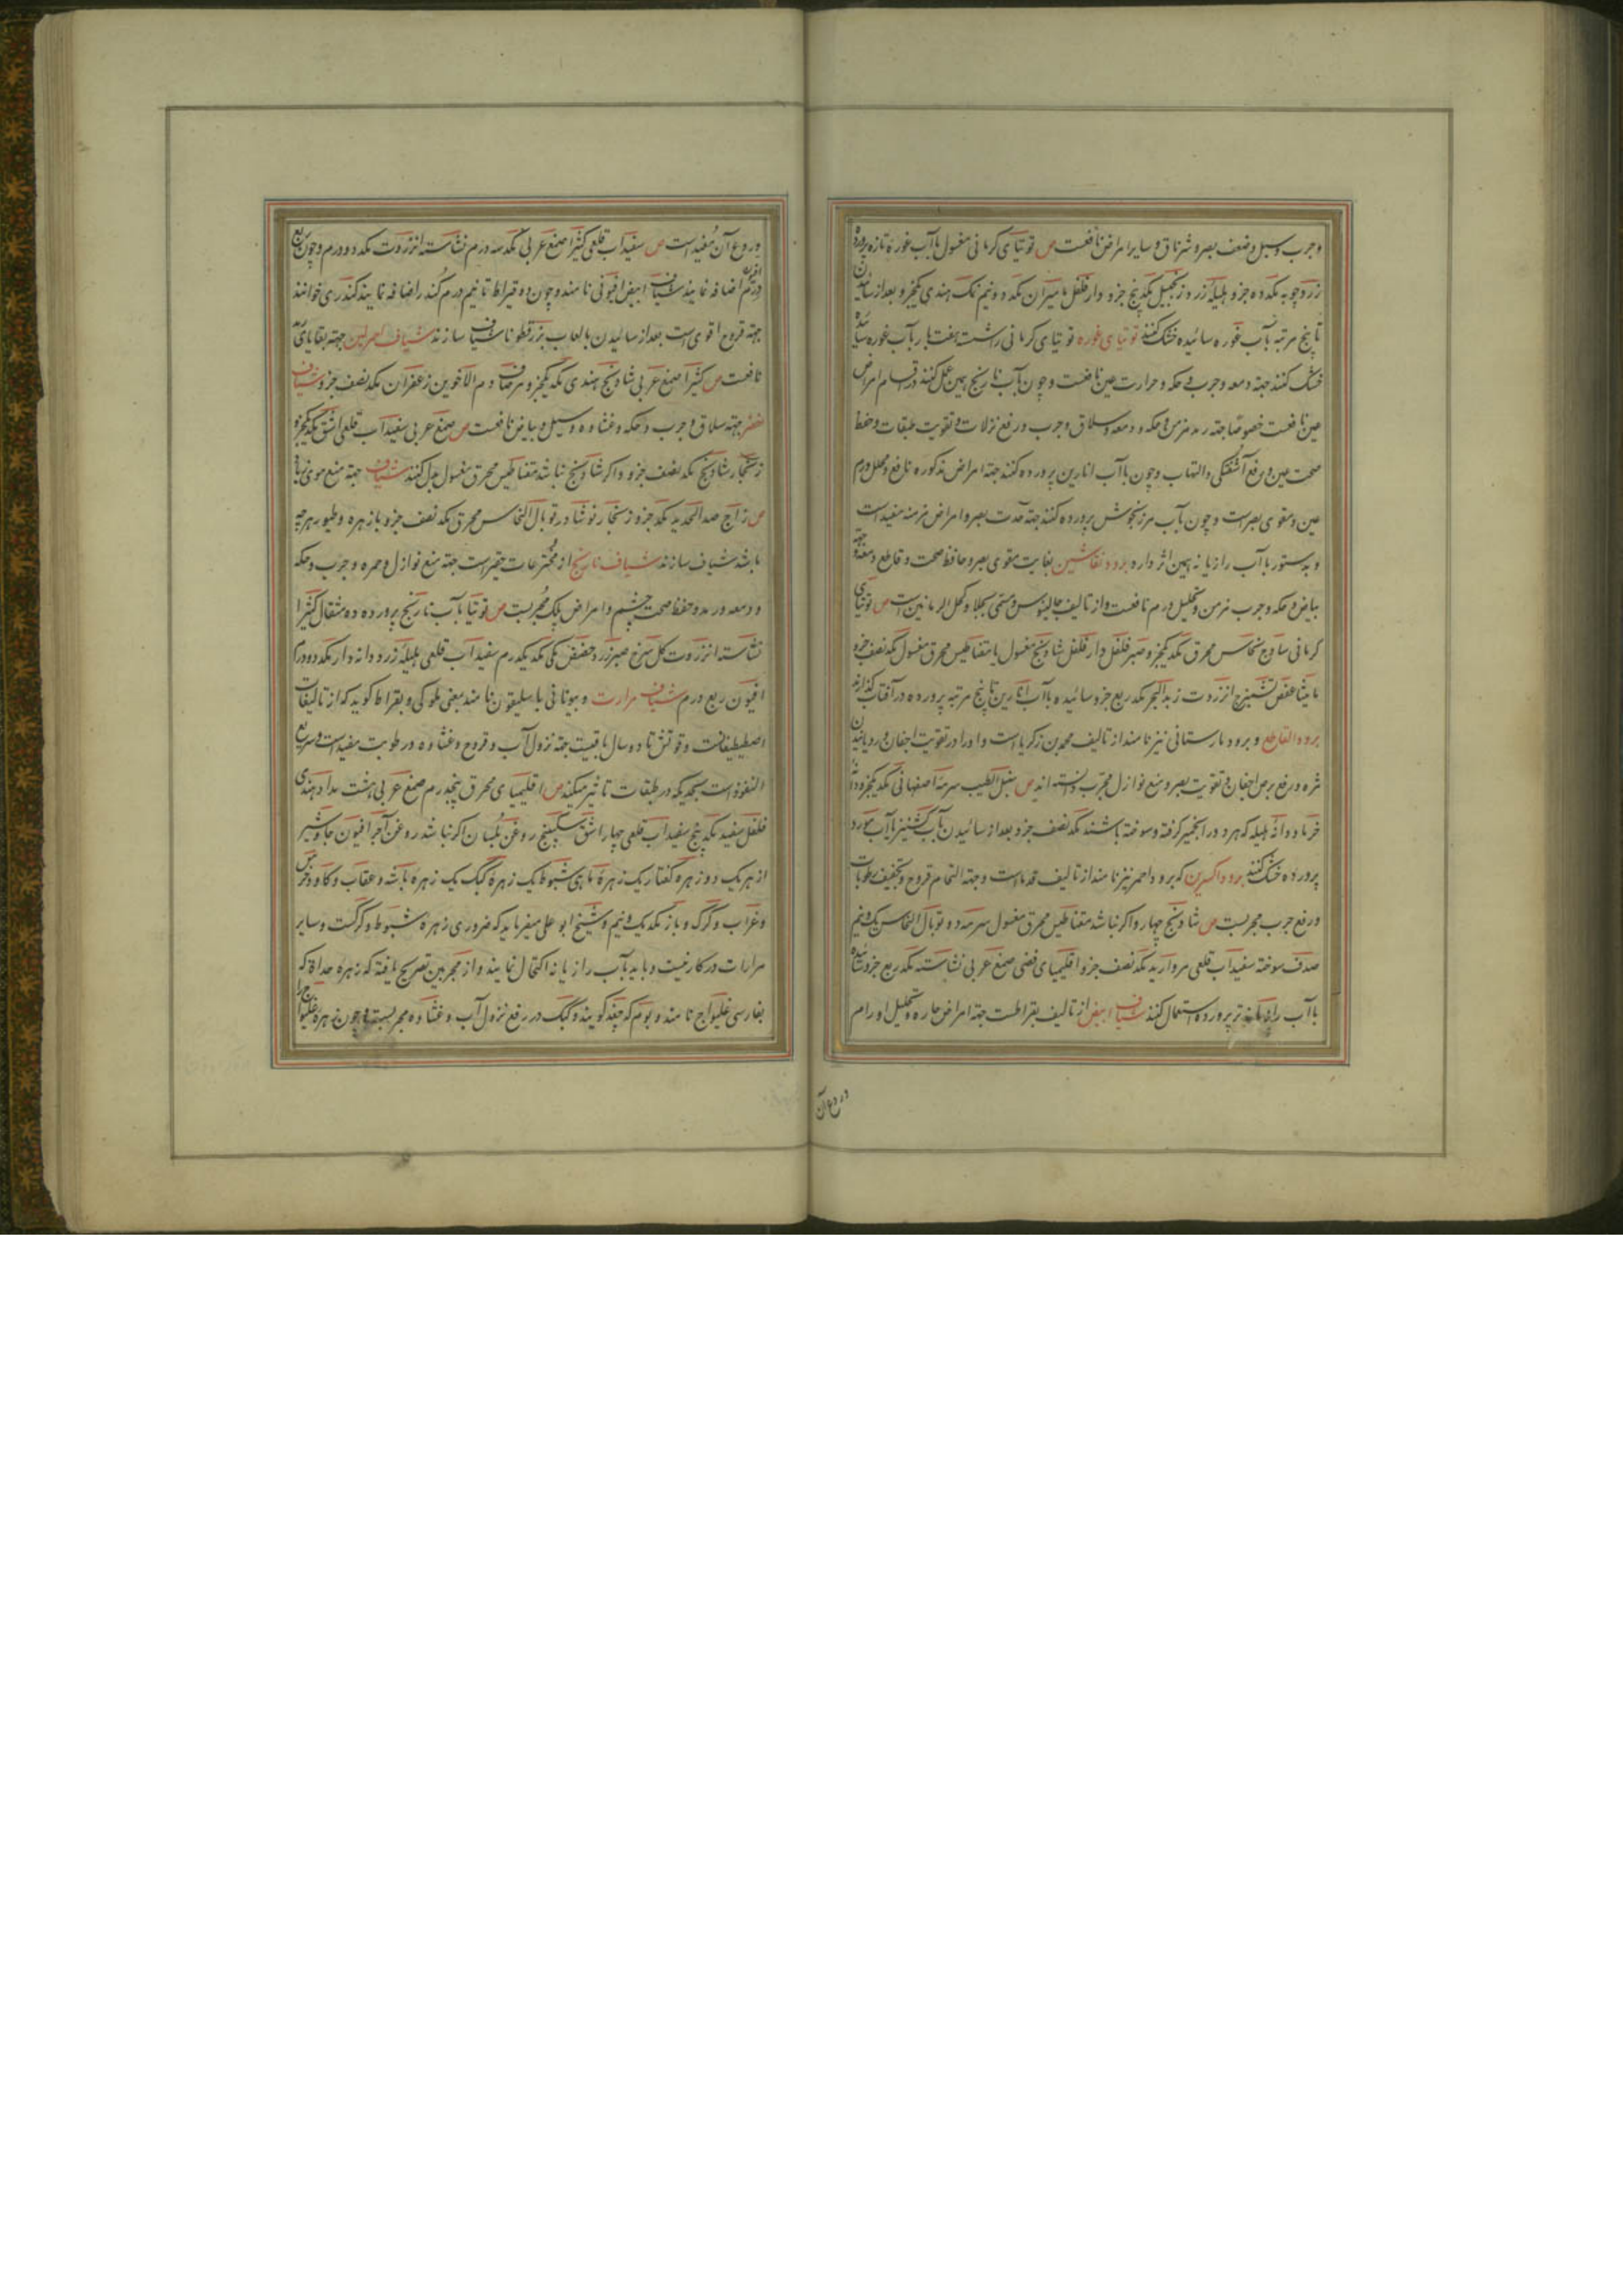 وجرب وسبل وضعف بصر و شرناق و سایر امراض نافعست ص توتیای کرمانی مغسول باآب غوره تازه پرورده
زردچوبه مکد ده جزو هلیله زرد زنجبیل مکد پنج جزو دارفلفل مامیران مکد دو ونیم نمک هندی یکجزو بعد از سائیدن
تا پنج مرتبه بآب غوره سائیده خشک کنند توتیای غوره توتیای کرمانی راشسته هفت بار بآب غوره سائیده
خشک کنند جهة دمعه وجرب وحکه وحرارت عین نافعست و چون بآب نارنج همین عمل کنند در اقسام امراض
عین نافعست خصوصا جهة رمد مزمن وحکه و دمعه وسلاق وجرب و رفع نزلات و تقویت طبقات وحفظ
صحت عین و رفع آشفتگی والتهاب وچون باآب انارین پرورده کنند جهة امراض مذکوره نافع ومحلل ورم
عین ومقوی بصراست وچون بآب مرزنجوش پرورده کنند جهة حدت بصر وامراض مزمنه مفیداست
وبدستور باآب رازیانه همین اثر دارد برود نقاشین بغایت مقوی بصر وحافظ صحت و قاطع دمعه وجهة
بیاض وحکه وجرب مزمن وتحلیل ورم نافعست واز تالیف جالینوس ومسمی بجلا وکحل الرمانین است ص توتیای
کرمانی ساذج نحاس محرق مکد یکجزو صبر فلفل دارفلفل شادنج مغسول یا مقناطیس محرق مغسول مکد نصف جزو
مامیثا عفص تشمیزج انزروت زبدالبحر مکد ربع جزو سائیده باآب انارین تا پنج مرتبه پرورده در آفتاب گذارند
برود القاطع و برود مارستانی نیز نامند از تالیف محمد بن زکریاست واورا در تقویت اجفان و رویانیدن
مژه ورفع برص اجفان و تقویت بصر ومنع نوازل مجرب دانسته اند ص سنبل الطیب سرمه اصفهانی مکد یکجزو دانه
خرما ودانه هلیله که هردو در خمیر گرفته وسوخته باشند مکد نصف جزو بعد از سائیدن بآب گشنیز یاآب مورد
پرورده خشک کنند برود اکسیرین که برود احمر نیز نامند از تالیف قدماست وجهة التحام قروح وتجفیف رطوبات
ورفع جرب مجربست ص شادنج چهار واگر نباشد مقناطیس محرق مغسول سرمه دو توبال النحاس یک ونیم
صدف سوخته سفیدآب قلعی مروارید مکد نصف جزو اقلیمیای فضی صمغ عربی نشاسته مکد ربع جزو سائیده
باآب رازیانه تر پرورده استعمال کنند شیاف ابیض از تالیف بقراطست جهة امراض حاره وتحلیل اورام
وردع آن
وردع آن مفیداست ص سفیدآب قلعی کتیرا صمغ عربی مکد سه درم نشاسته انزروت مکد دو درم وچون ربع
درم افیون اضافه نمایند شیاف ابیض افیونی نامند وچون ده قیراط تا نیم درم کندر اضافه نمایند کندری خوانند
جهة قروح اقوی است بعد از سائیدن بالعاب بزرقطونا شیاف سازند شیاف احمر لین جهة بقایای رمد
نافعست ص کتیرا صمغ عربی شادنج هندی مکد یکجزو مرصاف دم الاخوین زعفران مکد نصف جزو شیاف
اخضر جهة سلاق وجرب وحکه وغشاوه وسبل وبیاض نافعست ص صمغ عربی سفیدآب قلعی اشق مکد یکجزو
زنجار شادنج مکد نصف جزو واگر شادنج نباشد مقناطیس محرق مغسول بدل کنند شیاف جهة منع موی زیاد
ص زاج صدءالحدید مکد جزو زنجار نوشادر توبال النحاس محرق مکد نصف جزو بازهره وطیور هرچه
باشد شیاف سازند شیاف نارنج از مخترعات حقیراست جهة منع نوازل وحمره وجرب وحکه
ودمعه ورمد وحفظ صحت چشم وامراض پلک مجربست ص توتیا بآب نارنج پرورده ده مثقال کتیرا
نشاسته انزروت گل سرخ صبر زرد حضض مکی مکد یکدرم سفیدآب قلعی هلیله زرد دانه دار مکد دو درم
افیون ربع درم شیاف مرارت وبیونانی باسلیقون نامند یعنی ملوکی وبقراط گوید که از تالیفات
اصطیطیفانست وقوتش تا ده سال باقیست جهة نزول آب وقروح وغشاوه ورطوبت مفیداست وسریع
النفوذاست بحدیکه در طبقات تاثیر میکند ص اقلیمیای محرق پنجدرم صمغ عربی هشت مداد هندی
فلفل سفید مکد پنج سفیدآب قلعی چهار اشق سکبینج روغن بلسان اگر نباشد روغن آجر افیون جاوشیر
از هریک دو زهره کفتار یک زهره ماهی شبوط یک زهره کبک یک زهره باشه وعقاب وگاو وخرس
وغراب وگرگ وباز مکد یک ونیم وشیخ ابوعلی میفرماید که ضروری زهره شبوط وکبکست وسایر
مرارات در کار نیست وباید بآب رازیانه اکتحال نمایند واز مجربین تصریح یافته که زهره حداة که
بفارسی غلیواج نامند وبوم که چغد گویند وکبک در رفع نزول آب وغشاوه مجربست وچون زهره غلیواج را